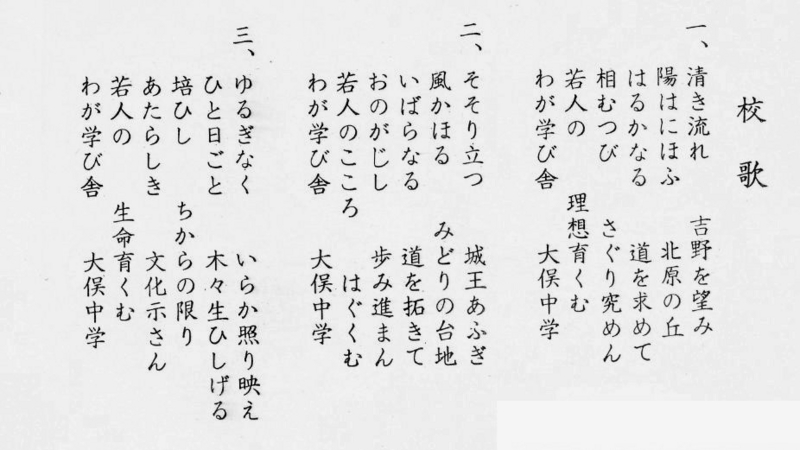 校 歌
一、清き流れ　吉野を望み
陽はにほふ　北原の丘
はるかなる　道を求めて
相むつび　さぐり究めん
若人の　理想育くむ
わが学び舎　大俣中学
二、そそり立つ　城王あふぎ
風かほる　みどりの台地
いばらなる　道を拓きて
おのがじし　歩み進まん
若人のこころ　はぐくむ
わが学び舎　大俣中学
三、ゆるぎなく　いらか照り映え
ひと日ごと　木々生ひしげる
培ひし　ちからの限り
あたらしき　文化示さん
若人の　生命育くむ
わが学び舎　大俣中学